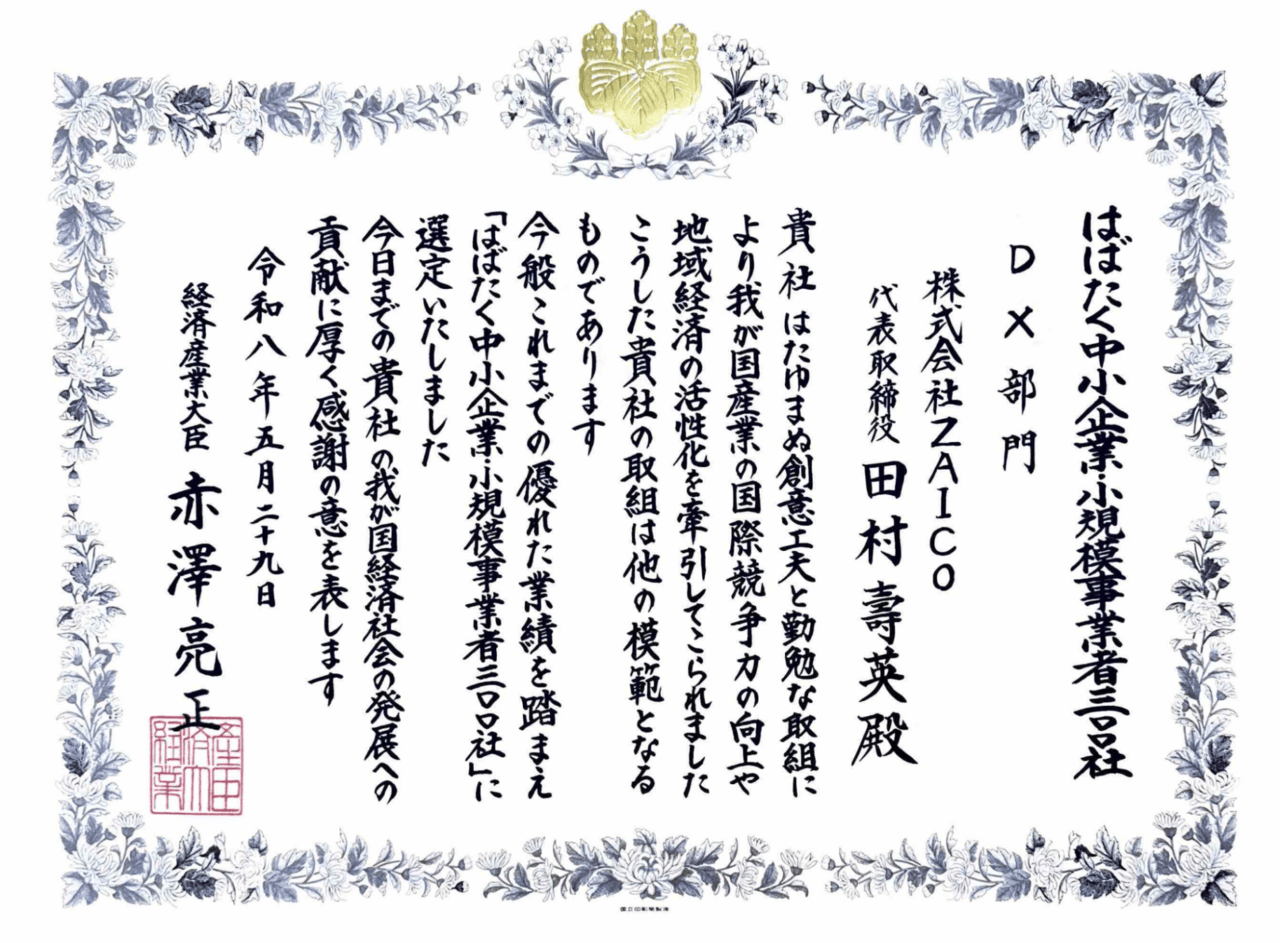 はばたく中小企業・小規模事業者三〇〇社
DX部門
株式会社ZAICO
代表取締役 田村壽英殿
貴社はたゆまぬ創意工夫と勤勉な取組に
より我が国産業の国際競争力の向上や
地域経済の活性化を牽引してこられました
こうした貴社の取組は他の模範となる
ものであります
今般これまでの優れた業績を踏まえ
「はばたく中小企業・小規模事業者三〇〇社」に
選定いたしました
今日までの貴社の我が国経済社会の発展への
貢献に厚く感謝の意を表します
令和八年五月二十九日
経済産業大臣 赤澤亮正
経済産業大臣
国立印刷局製造